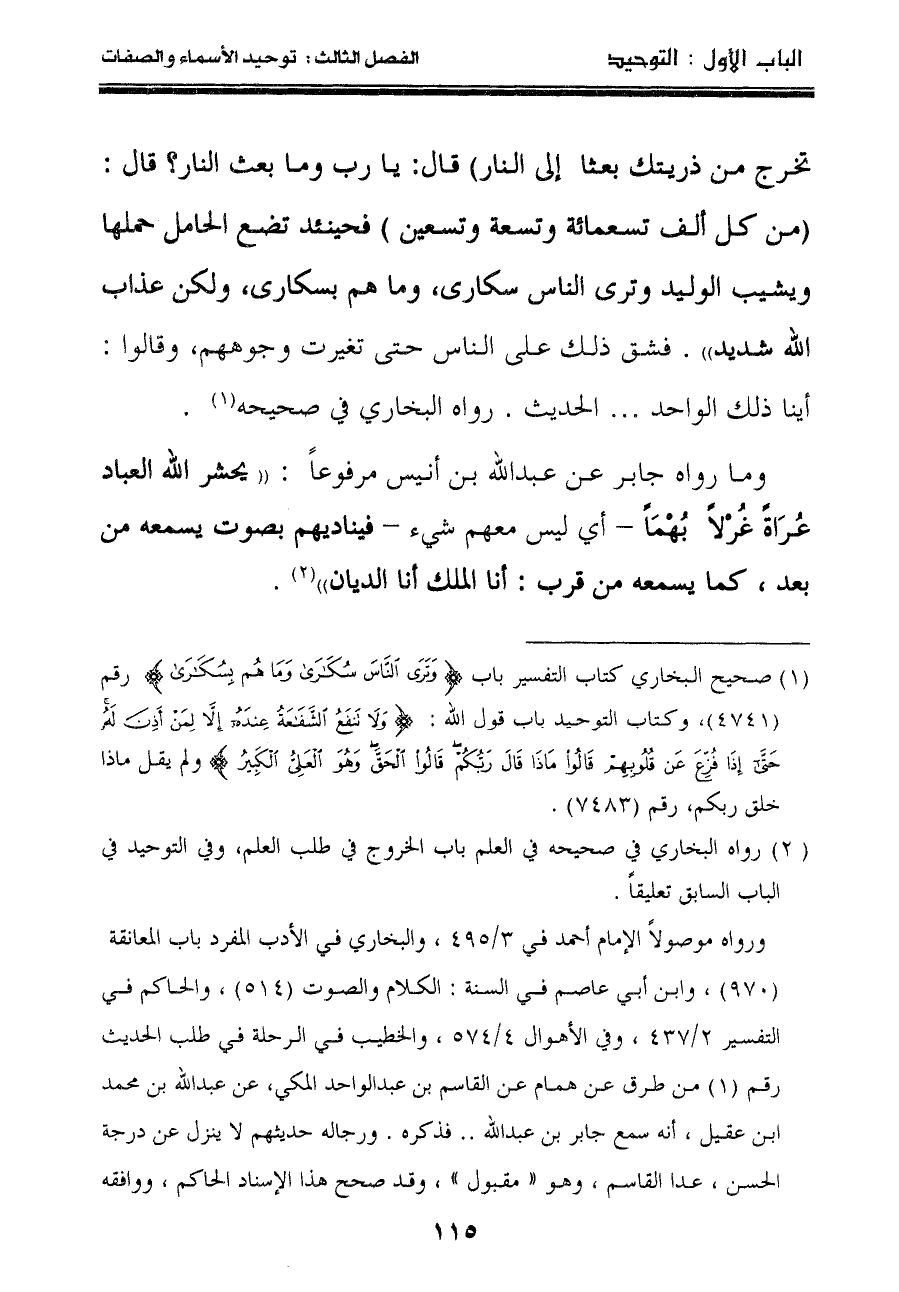 الباب الأول : التوحيد
الفصل الثالث : توحيد الأسماء والصفات
تخرج من ذريتك بعثا إلى النار) قال: يا رب وما بعث النار؟ قال :
(من كل ألف تسعمائة وتسعة وتسعين ) فحينئد تضع الحامل حملها
ويشيب الوليد وترى الناس سكارى، وما هم بسكارى، ولكن عذاب
الله شديد)) . فشق ذلك على الناس حتى تغيرت وجوههم، وقالوا :
أينا ذلك الواحد ... الحديث . رواه البخاري في صحيحه(١) .
وما رواه جابر عن عبدالله بن أنيس مرفوعاً : (( يحشر الله العباد
عُرَاةً غُرْلاً بُهْمَاً – أي ليس معهم شيء – فيناديهم بصوت يسمعه من
بعد ، كما يسمعه من قرب : أنا الملك أنا الديان))(٢) .
(١) صحيح البخاري كتاب التفسير باب ﴿ وَتَرَى ٱلنَّاسَ سُكَـٰرَىٰ وَمَا هُم بِسُكَـٰرَىٰ ﴾ رقم
(٤٧٤١)، وكتاب التوحيد باب قول الله : ﴿ وَلَا تَنفَعُ ٱلشَّفَـٰعَةُ عِندَهُۥٓ إِلَّا لِمَنْ أَذِنَ لَهُۥۚ
حَتَّىٰٓ إِذَا فُزِّعَ عَن قُلُوبِهِمْ قَالُوا۟ مَاذَا قَالَ رَبُّكُمْۖ قَالُوا۟ ٱلْحَقَّۖ وَهُوَ ٱلْعَلِىُّ ٱلْكَبِيرُ ﴾ ولم يقل ماذا
خلق ربكم، رقم (٧٤٨٣) .
( ٢) رواه البخاري في صحيحه في العلم باب الخروج في طلب العلم، وفي التوحيد في
الباب السابق تعليقاً .
ورواه موصولاً الإمام أحمد في ٤٩٥/٣ ، والبخاري في الأدب المفرد باب المعانقة
(٩٧٠) ، وابن أبي عاصم في السنة : الكلام والصوت (٥١٤) ، والحاكم في
التفسير ٤٣٧/٢ ، وفي الأهوال ٥٧٤/٤ ، والخطيب في الرحلة في طلب الحديث
رقم (١) من طرق عن همام عن القاسم بن عبدالواحد المكي، عن عبدالله بن محمد
ابن عقيل ، أنه سمع جابر بن عبدالله .. فذكره . ورجاله حديثهم لا ينزل عن درجة
الحسن ، عدا القاسم ، وهو « مقبول » ، وقد صحح هذا الإسناد الحاكم ، ووافقه
١١٥